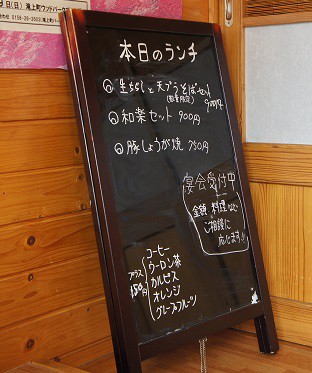 日(日) 滝上町ウッドパーク
合わせ 0158-29-3002 滝上町
本日のランチ
生ちらしと天ぷらそばセット
(数量限定) 900円
和楽セット 900円
豚しょうが焼 750円
宴会受付中
金額、料理など
ご相談に
応じます!!
プラス
150円
コーヒー
ウーロン茶
カルピス
オレンジ
グレープフルーツ